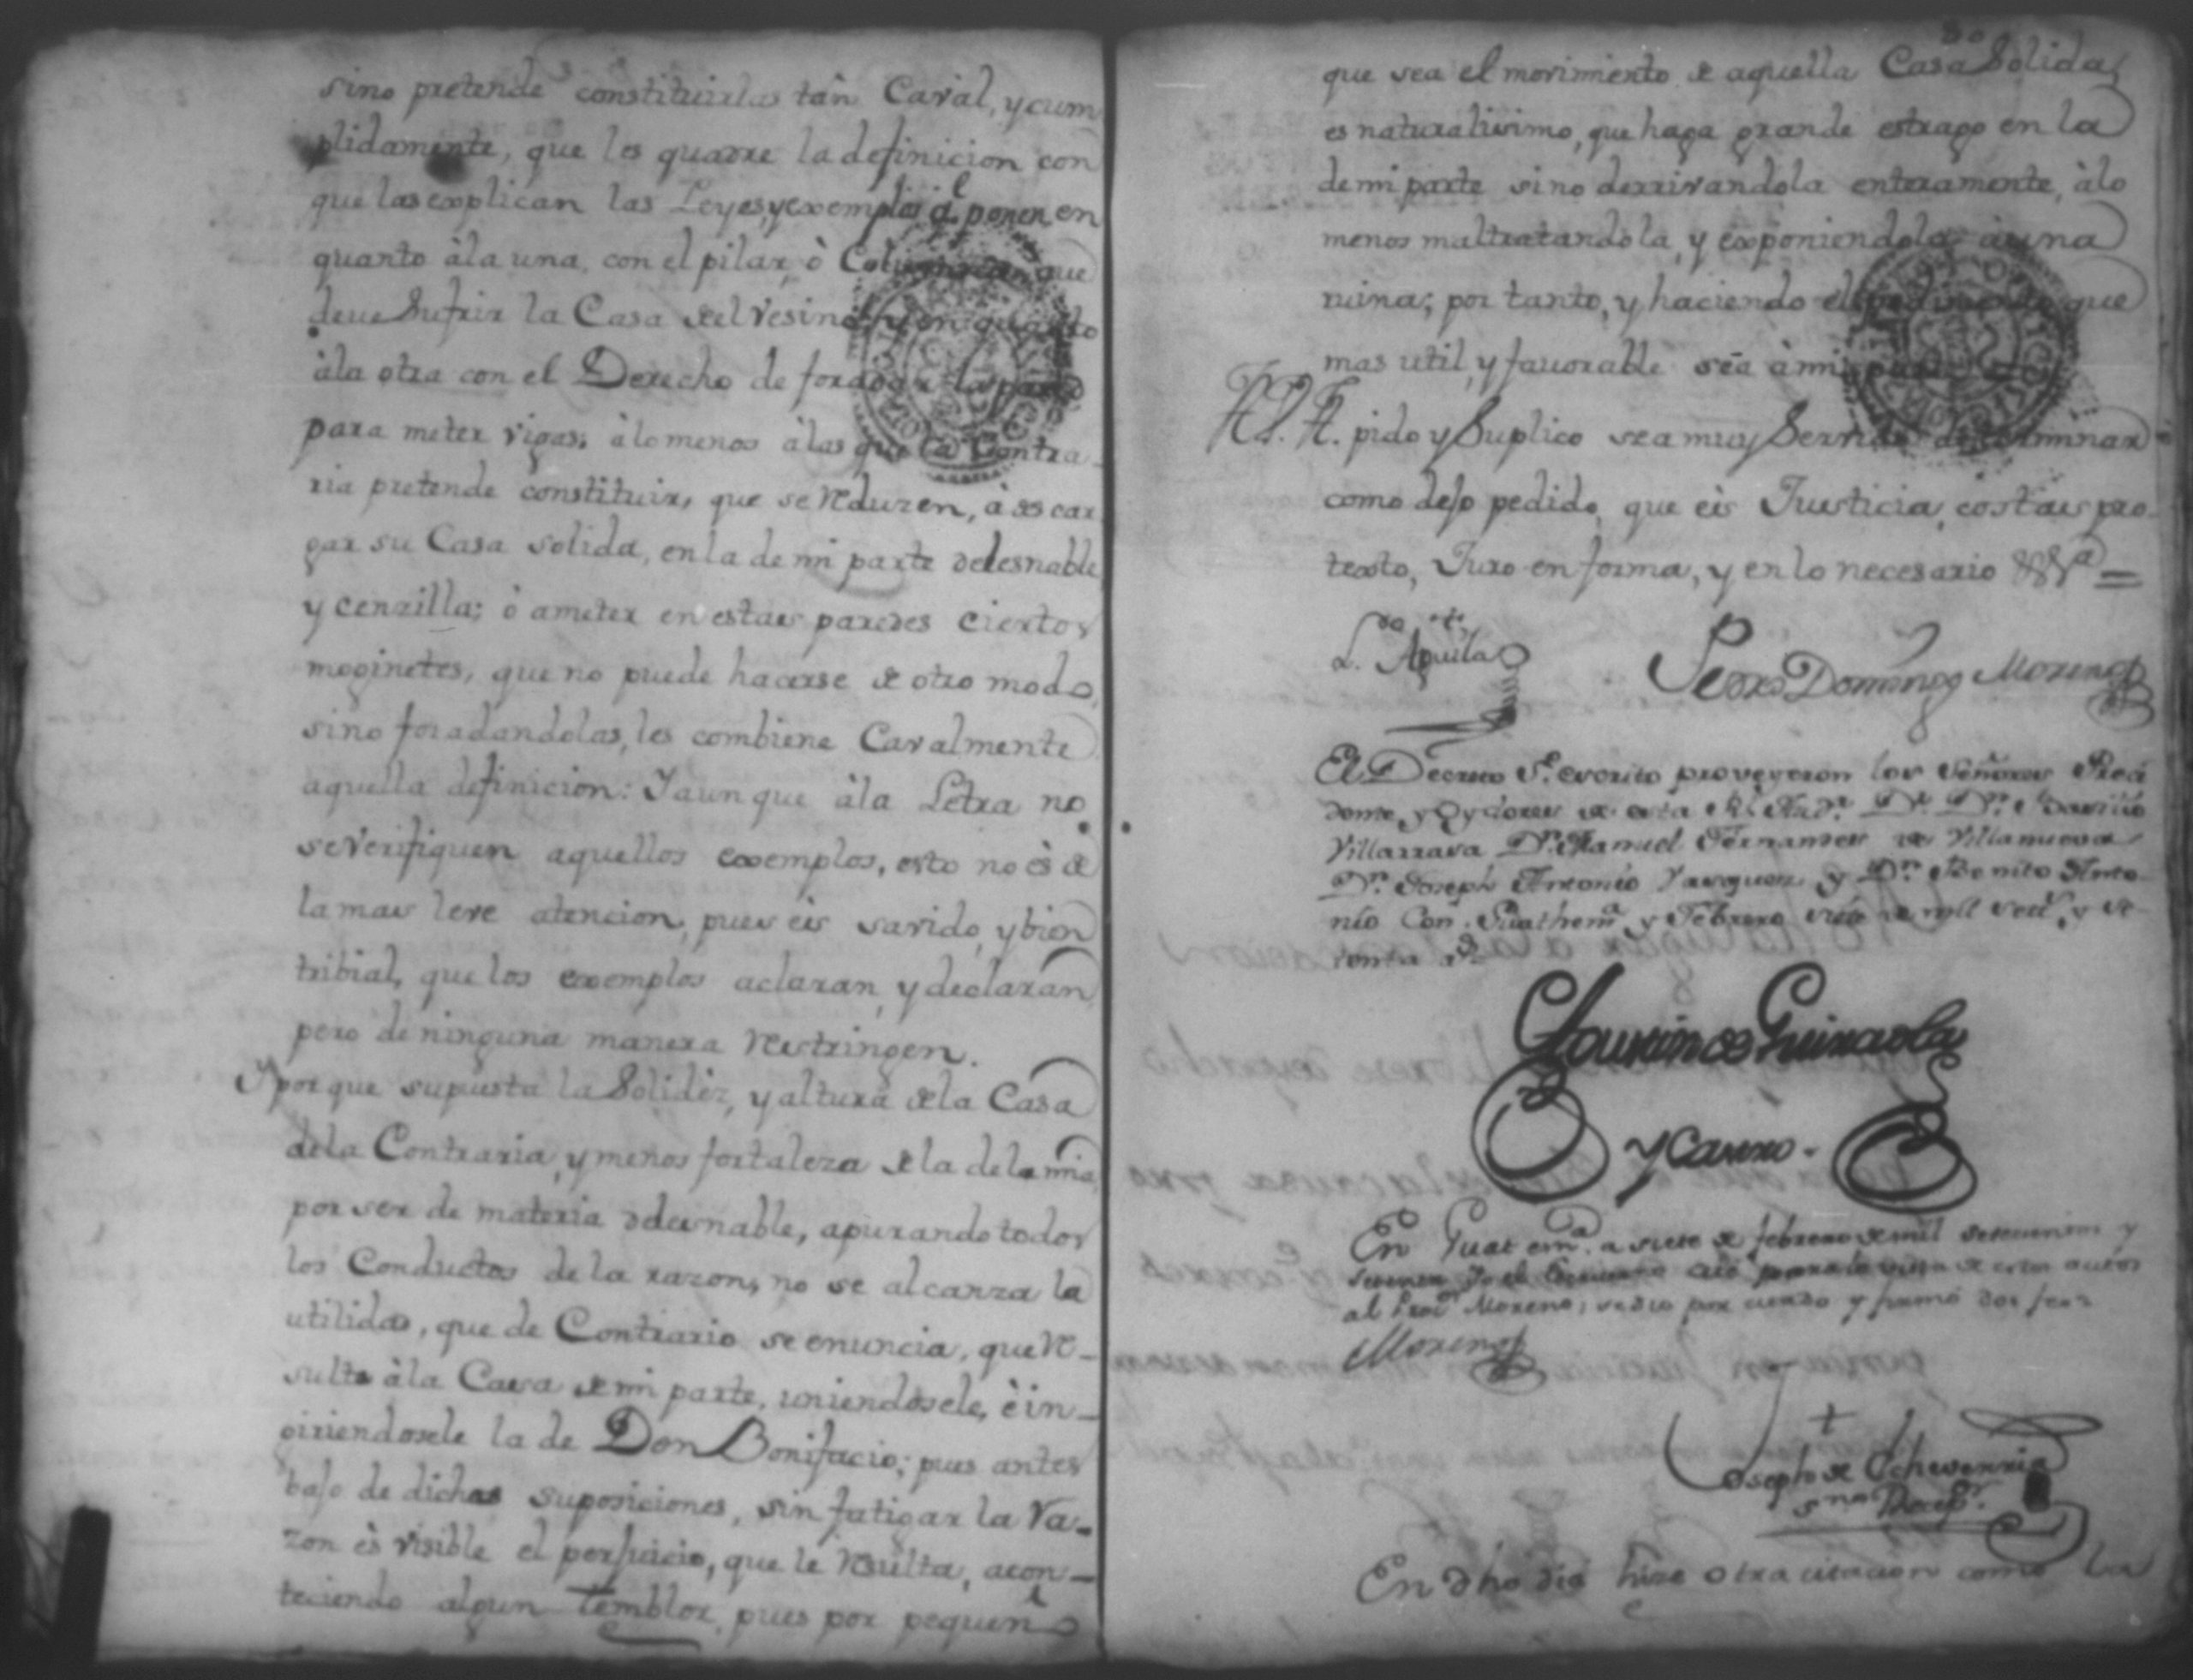 sino pretende constituirlas tân Caval, y cum
plidamente, que les quadre la definicion con
que las explican las Leyes, y exemplos q.e ponen en
quanto àla una, con el pilar, ò que
deue Sufrir la Casa del Vesino, y en quanto
àla otra con el Derecho de foradar la pared
para meter vigas, àlo menos àlas que la Contra-
ria pretende constituir, que se Reduzen, à descar
gar su Casa solida, en la de mi parte delesnable
y cenzilla; ò ameter en estas paredes ciertos
moginetes, que no puede hacerse de otro modo,
sino foradandolas, les combiene Cavalmente
aquella definicion: Y aunque àla Letra no
se verifiquen aquellos exemplos, esto no ès de
la mas leve atencion, pues eis savido, y bien
tribial, que los exemplos aclaran, y declaran,
pero de ninguna manera Restringen.
Y porque supuesta la Solidèz, y altura de la Casa
dela Contraria, y menos fortaleza de la de la mia
por ser de materia delesnable, apurando todos
los Conductos de la razon, no se alcanza la
utilidad, que de Contrario se enuncia, que Re-
sulte àla Casa de mi parte, uniendosele, è in-
giriendosele la de Don Bonifacio; pues antes
bajo de dichas suposiciones, sin fatigar la Ra-
zon ès visible el perjuicio, que le Resulta, acon-
teciendo algun Temblor, pues por pequeño
que sea el movimiento de aquella Casa Solida,
es naturalisimo, que haga grande estrago en la
de mi parte sino derrivandola enteramente, àlo
menos maltratandola, y exponiendola àuna
ruina; por tanto, y haciendo el pedimento que
mas util, y fauorable sea à mi parte
A V. A. pido y Suplico sea muy Servido determinar
como dejo pedido, que eis Justicia, costas pro-
texto, Juro en forma, y en lo necesario &.a =
L.do Aguila
Pedro Domingo Moreno
El Decreto S.e escrito proveyeron los Señores Presi
dente, y Oydores de esta R.l Aud.a D.r D.n Basilio
Villarrasa D.n Manuel Fernandez de Villanueva
D.n Joseph Antonio y D.n Benito Anto-
nio Con. Guathem.a y Febrero siete de mill set.s y se
tenta a.s
y Castro.
En Guatem.a a siete de febrero de mil setecientos y
setenta Yo el Escriuano cité para la vista de estos autos
al Proc.r Moreno; se dio por citado y firmó doy fee
Moreno
Joseph de Echeverria
En dho dia hize otra citacion como la